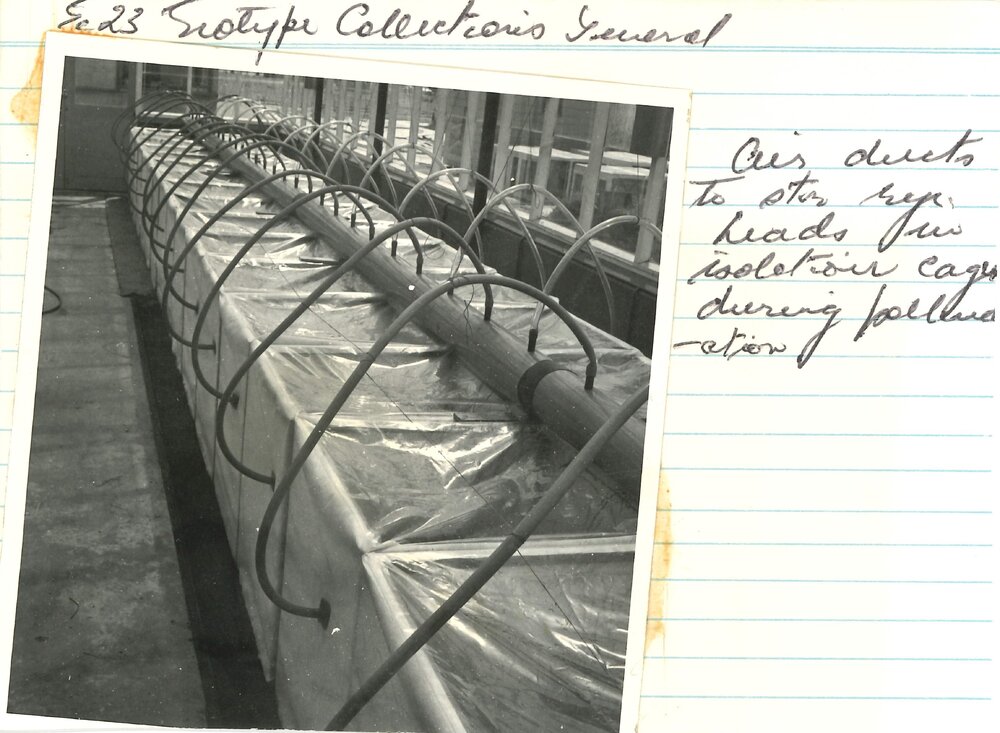 Ec 23 Ecotype Collections General
Air ducts
to stir
heads in
isolation cages
during pollina
-ation